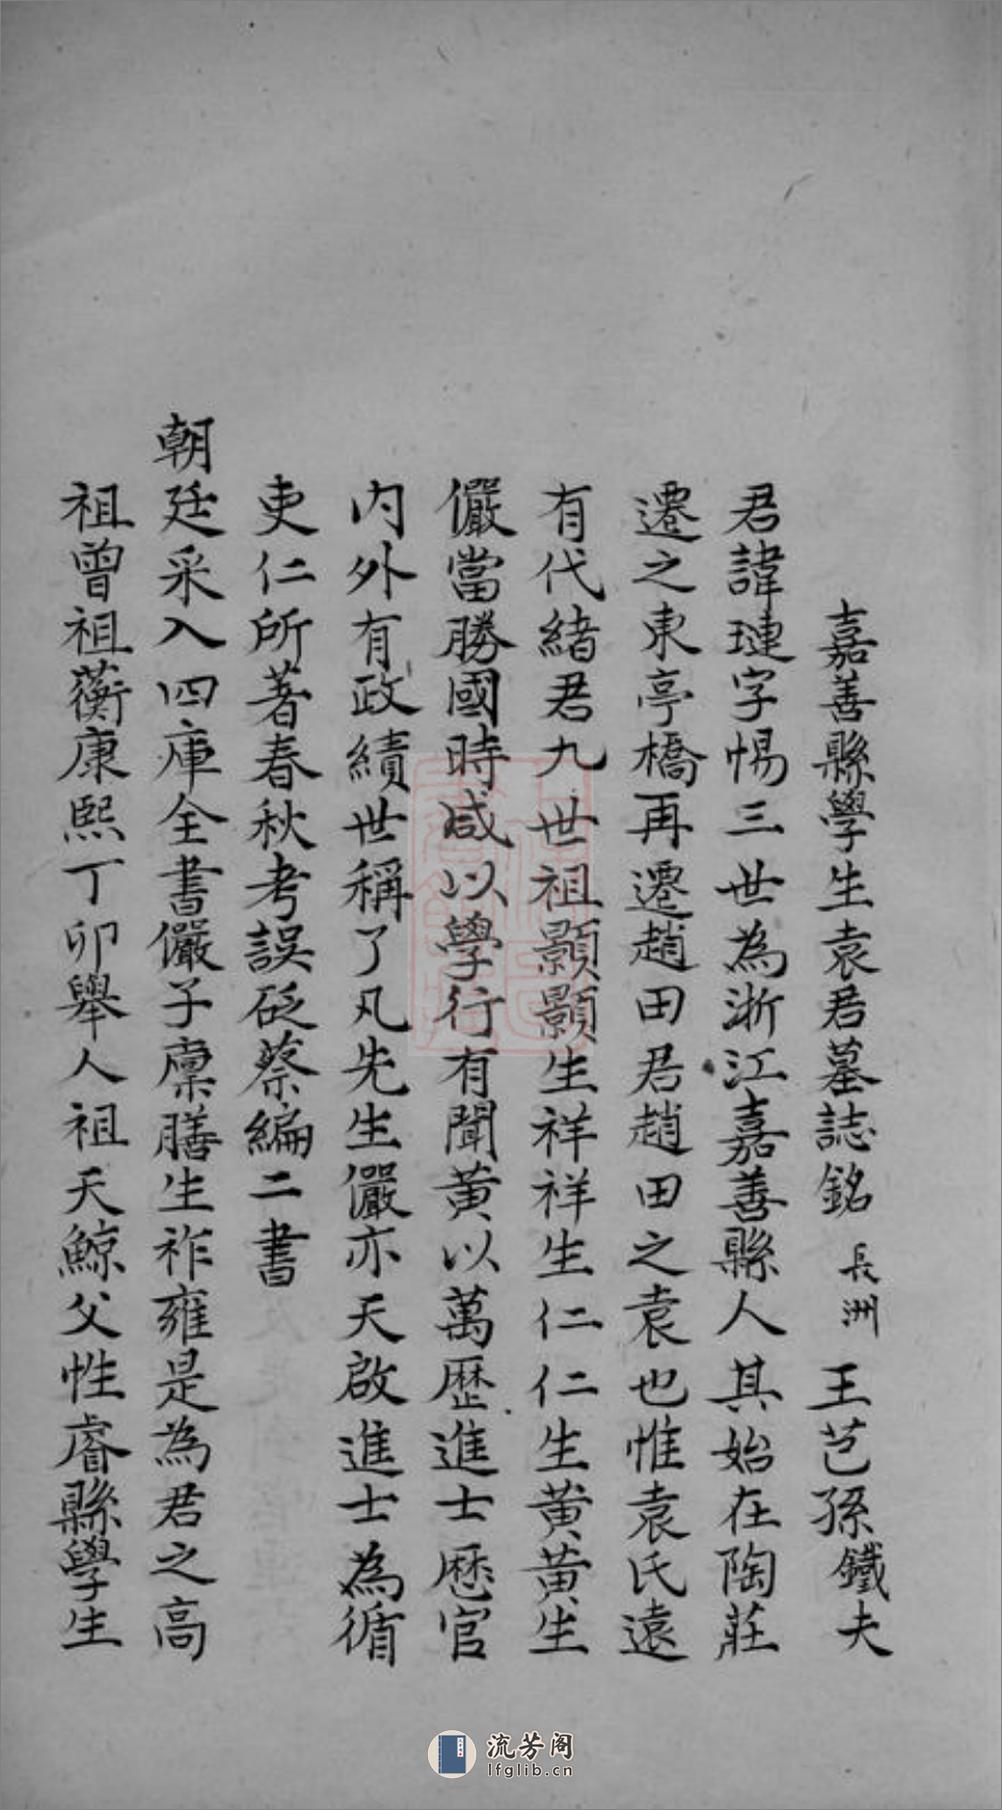 嘉善縣學生袁君墓誌銘 長洲 王芑孫鐵夫
君諱璉字惕三世為浙江嘉善縣人其始在陶莊
遷之東亭橋再遷趙田君趙田之袁也惟袁氏遠
有代緒君九世祖顥顥生祥祥生仁仁生黄黄生
儼當勝國時咸以學行有聞黄以萬歷進士歷官
内外有政績世稱了凡先生儼亦天啟進士為循
吏仁所著春秋考誤砭蔡編二書
朝廷采入四庫全書儼子廩膳生祚雍是為君之高
祖曾祖蘅康熙丁卯舉人祖天鯨父性睿縣學生
流芳阁
lfglib.cn